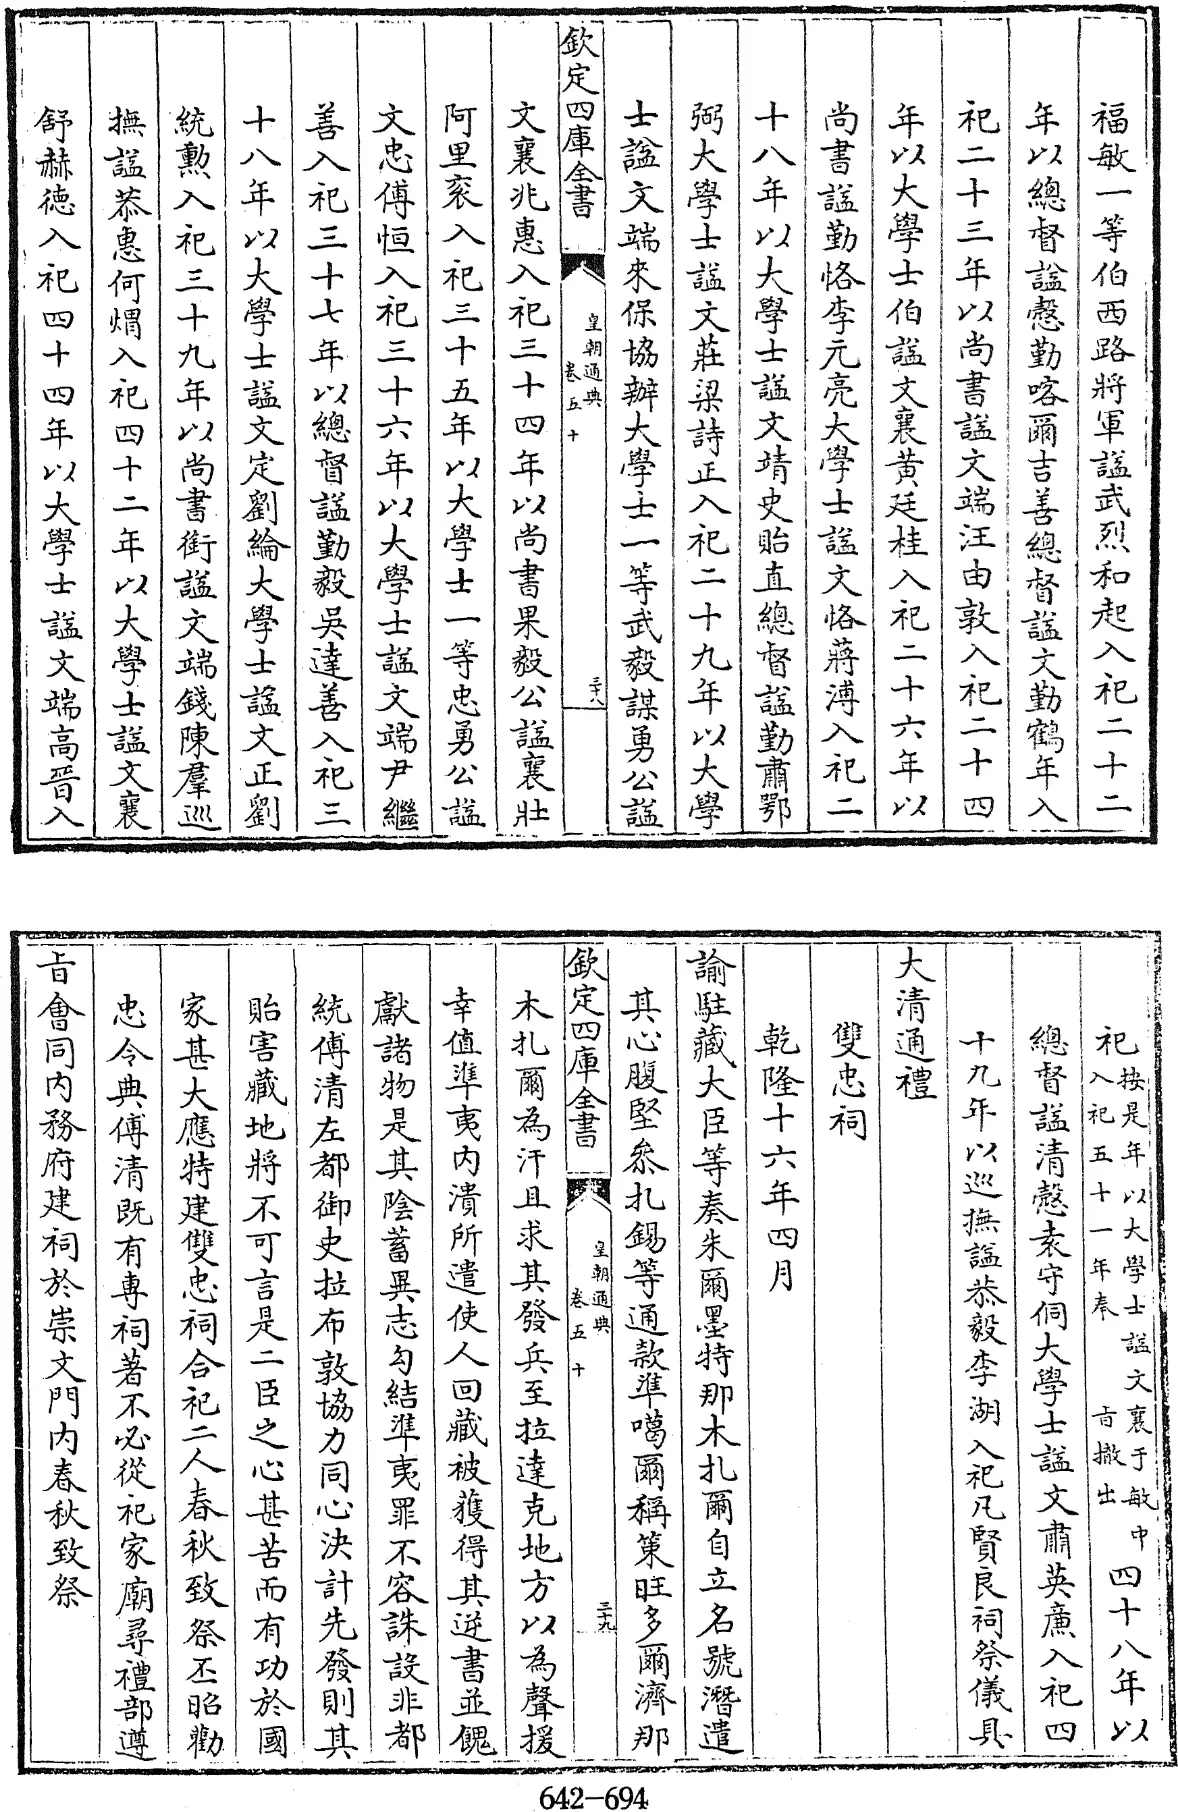 福敏一等伯西路將軍諡武烈和起入祀二十二
年以總督諡慤勤喀爾吉善總督諡文勤鶴年入
祀二十三年以尚書諡文端汪由敦入祀二十四
年以大學士伯諡文襄黃廷桂入祀二十六年以
尚書諡勤恪李元亮大學士諡文恪蔣溥入祀二
十八年以大學士諡文靖史貽直總督諡勤肅鄂
弼大學士諡文莊梁詩正入祀二十九年以大學
士諡文端來保協辦大學士一等武毅謀勇公諡
欽定四庫全書
皇朝通典
卷五十
三十八
文襄兆惠入祀三十四年以尚書果毅公諡襄壯
阿里袞入祀三十五年以大學士一等忠勇公諡
文忠傅恒入祀三十六年以大學士諡文端尹繼
善入祀三十七年以總督諡勤毅吳達善入祀三
十八年以大學士諡文定劉綸大學士諡文正劉
統勳入祀三十九年以尚書銜諡文端錢陳羣巡
撫諡恭惠何煟入祀四十二年以大學士諡文襄
舒赫德入祀四十四年以大學士諡文端高晉入
祀按是年以大學士諡文襄于敏中入祀五十一年奉 旨撤出四十八年以
總督諡清慤袁守侗大學士諡文肅英廉入祀四
十九年以巡撫諡恭毅李湖入祀凡賢良祠祭儀具
大清通禮
雙忠祠
乾隆十六年四月
諭駐藏大臣等奏朱爾墨特那木扎爾自立名號潛遣
其心腹堅叅扎錫等通款準噶爾稱策旺多爾濟那
欽定四庫全書
皇朝通典
卷五十
三十九
木扎爾為汗且求其發兵至拉達克地方以為聲援
幸值準夷內潰所遣使人回藏被獲得其逆書並餽
獻諸物是其陰蓄異志勾結準夷罪不容誅設非都
統傅清左都御史拉布敦協力同心決計先發則其
貽害藏地將不可言是二臣之心甚苦而有功於國
家甚大應特建雙忠祠合祀二人春秋致祭丕昭勸
忠令典傅清既有專祠著不必從祀家廟尋禮部遵
旨會同內務府建祠於崇文門內春秋致祭
642-694